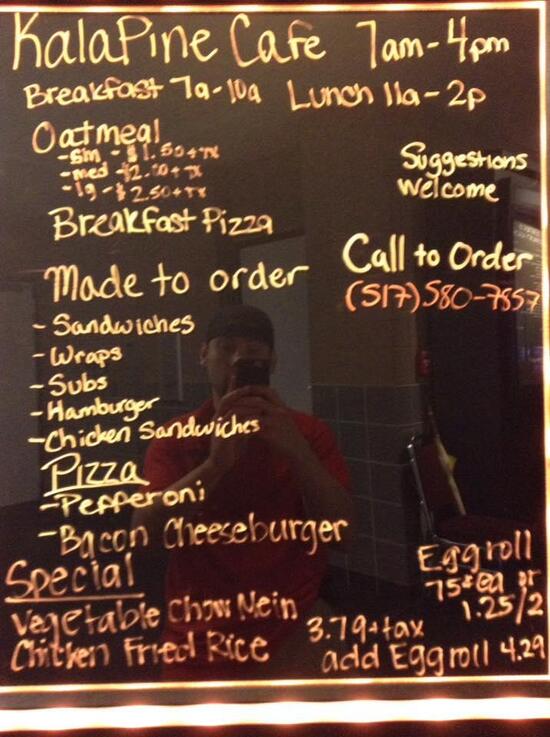 KalaPine Cafe 7am-4pm
Breakfast 7a-10a Lunch 11a-2p
Oatmeal
-sm - $1.50+TX
-med -$2.00+TX
-lg -$2.50+TX
Breakfast Pizza
Suggestions
Welcome
Call to Order
(517)580-7857
Made to order
- Sandwiches
- Wraps
- Subs
- Hamburger
- Chicken Sandwiches
Pizza
- Pepperoni
- Bacon Cheeseburger
Special
Vegetable Chow Mein
Chicken Fried Rice
3.79+tax
add Eggroll 4.29
Eggroll
75¢ ea or
1.25/2